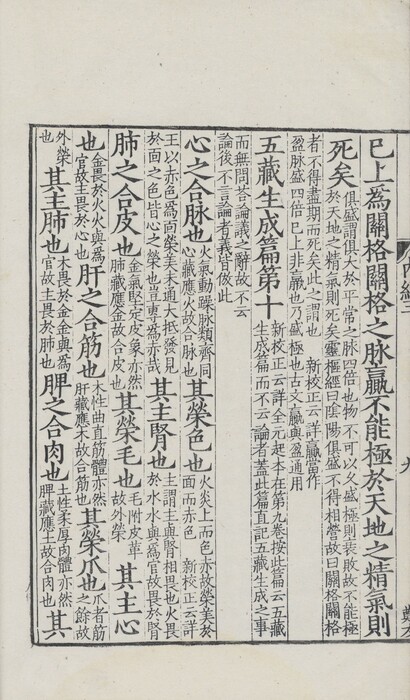 已上爲關格關格之脉贏不能極於天地之精氣則
死矣俱盛謂俱大於平常之脉四倍也物不可以久盛極則衰敗故不能極於天地之精氣則死矣靈樞經曰陰陽俱盛不得相營故曰關格關格
者不得盡期而死矣此之謂也 新校正云詳贏當作盈脉盛四倍已上非贏也乃盛極也古文贏與盈通用
五藏生成篇第十新校正云詳全元起本在第九卷按此篇云五藏生成篇而不云論者蓋此篇直記五藏生成之事
而無問荅論議之辭故不云論後不言論者義皆倣此
心之合脉也火氣動躁脉類齊同心藏應火故合脉也其榮色也火炎上而色赤故榮美於面而赤色 新校正云詳
王以赤色爲面榮美未通大抵發見於面之色皆心之榮也豈專爲赤哉其主腎也主謂主與腎相畏也火畏於水水與爲官故畏於腎
肺之合皮也金氣堅定皮象亦然肺藏應金故合皮也其榮毛也毛附皮革故外榮其主心
也金畏於火火與爲官故主畏於心也肝之合筋也木性曲直筋體亦然肝藏應木故合筋也其榮爪也爪者筋之餘故
外榮也其主肺也木畏於金金與爲官故主畏於肺也脾之合肉也土性柔厚肉體亦然脾藏應土故合肉也其